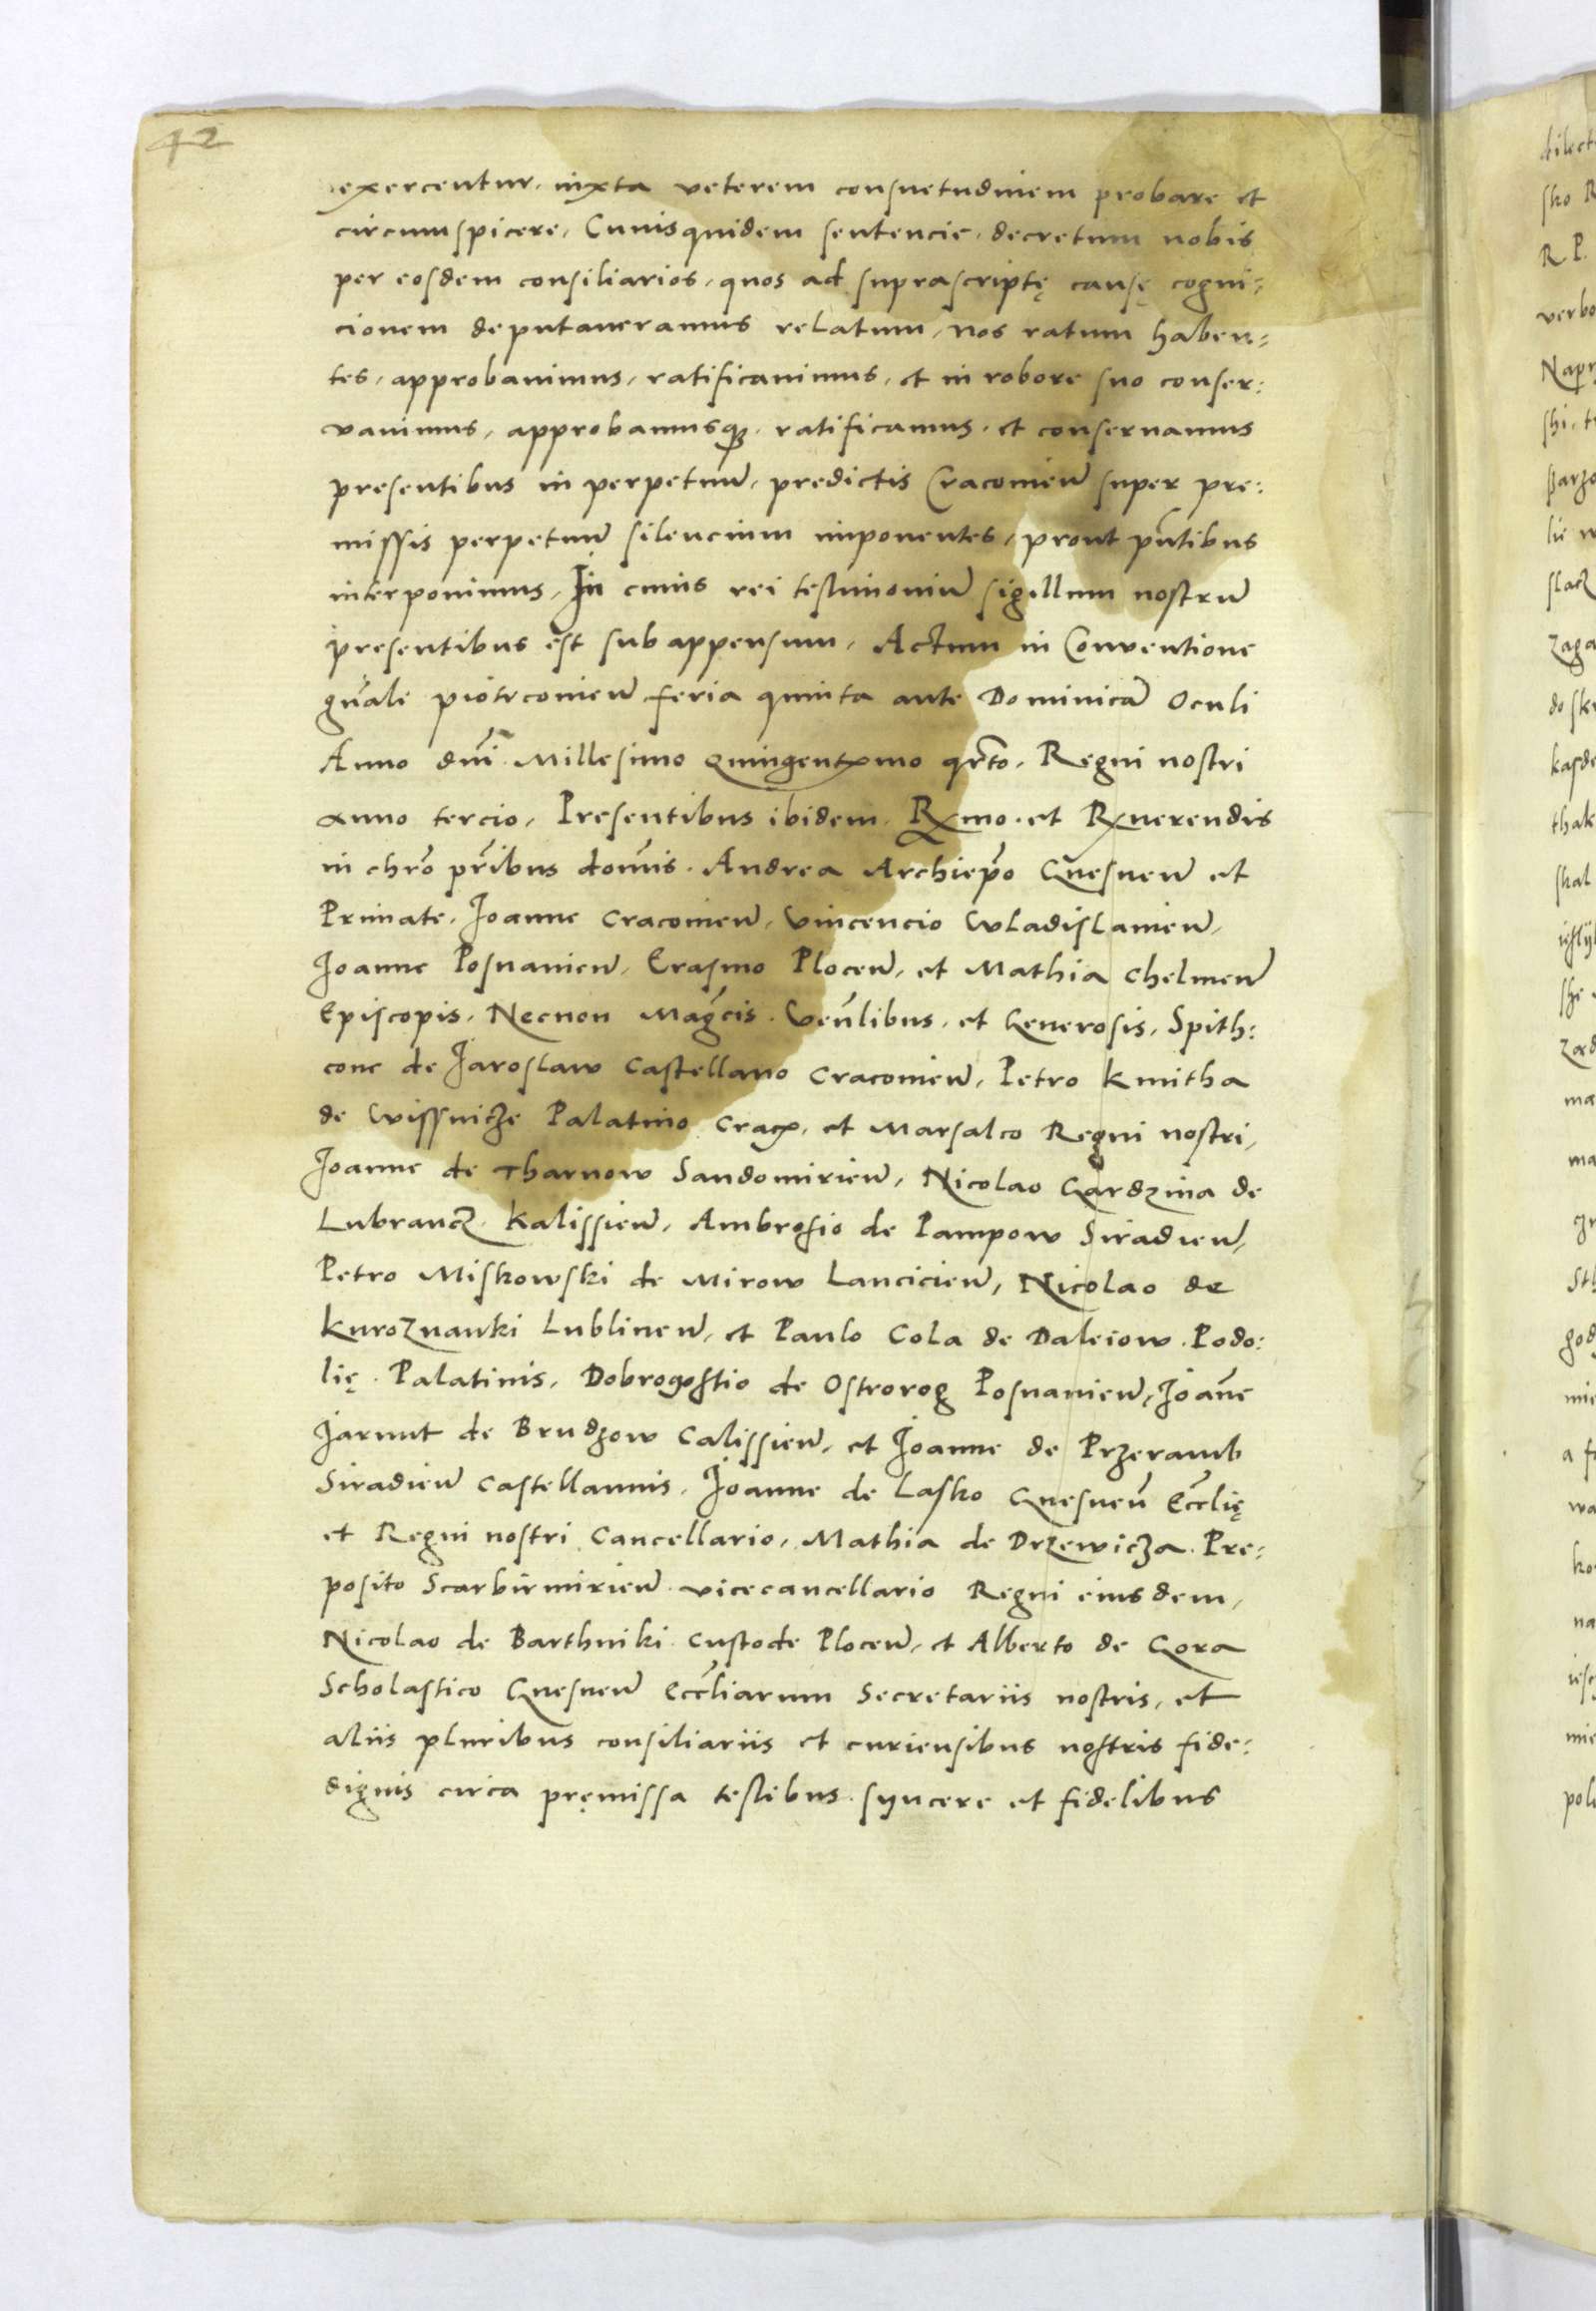 42
exercentur. iuxta veterem consuetudinem probare et
circumspicere, Cuiusquidem sentencie, decretum nobis
per eosdem consiliarios, quos ad suprascriptę causę cogni:
cionem deputaueramus relatum, nos ratum haben:
tes, approbauimus, ratificauimus, et in robore suo conser:
vauimus, approbamusq3. ratificamus. et conseruamus
presentibus in perpetuū, predictis Cracouien̄ super pre:
missis perpetuū silencium imponentes, prout pn̄tibus
interponimus, In cuius rei testimoniū sigillum nostrū
presentibus est subappensum, Actum in Conventione
gn̄ali piotrcouien̄ feria quinta ante Dominicā Oculi
Anno dn̄i Millesimo Quingentxmo qr̄to, Regni nostri
anno tercio, Presentibus ibidem, Rxmo. et Rxuerendis
in chr̄o pr̄ibus dom̄is. Andrea Archiep̄o Gnesnen̄ et
Primate, Joanne Cracouien̄, Vincencio Wladislauien̄,
Joanne Posnanien̄, Erasmo Plocen̄, et Mathia Chelmen̄
Episcopis, Necnon Maḡcis. Ven̄libus, et Generosis, Spith:
cone de Jaroslaw Castellano Cracouien̄, Petro Kmitha
de Wissnicze Palatino Cracx, et Marsalco Regni nostri,
Joanne de Tharnow Sandomirien̄, Nicolao Gardzina de
Lubrancz. Kalissien̄, Ambrosio de Pampow Siradien̄,
Petro Miskowski de Mirow Lancicien̄, Nicolao de
Kurozwanki Lublinen̄, et Paulo Cola de Daleiow. Podo:
lię. Palatinis, Dobrogostio de Ostrorog Posnanien̄, Joan̄e
Jarunt de Brudzow Calissien̄, et Joanne de Przeramb
Siradien̄ Castellannis, Joanne de Lasko Gnesnen̄ Eccl̄ię
et Regni nostri Cancellario, Mathia de Drzewicza. Pre:
posito Scarbirmirien̄ vicecancellario Regni eiusdem,
Nicolao de Barthniki Custode Plocen̄, et Alberto de Gora
Scholastico Gnesnen̄ Eccl̄iarum Secretariis nostris, et
aliis pluribus consiliariis et curiensibus nostris fide:
dignis circa pręmissa testibus. syncere et fidelibus